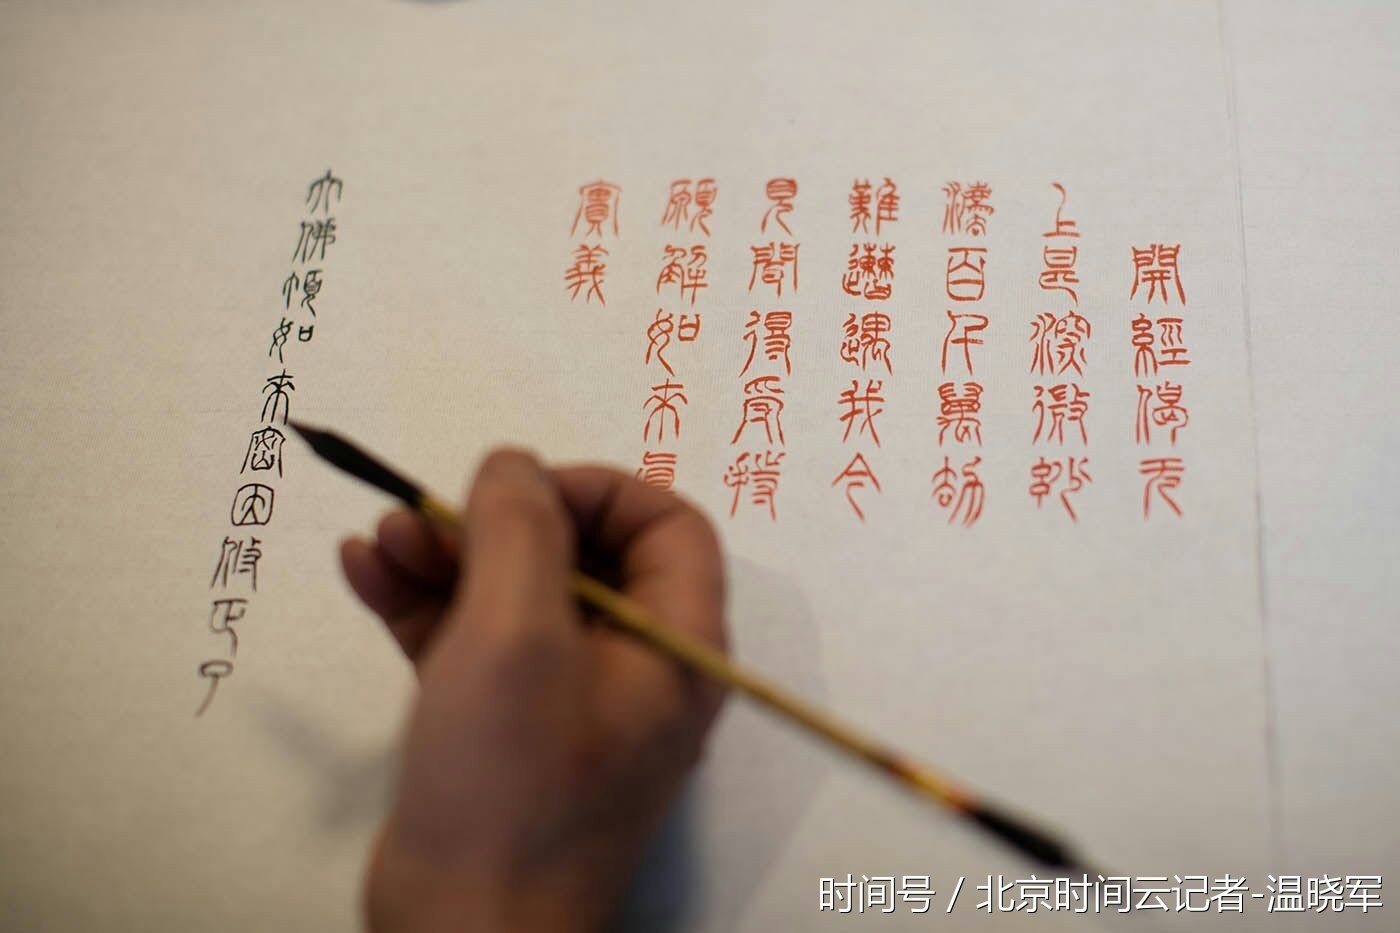 開經偈无
上甚深微妙
灋百千萬劫
難遭遇我今
見聞得受持
願解如來真
實義
大佛頂如來密因修正了
时间号 / 北京时间云记者-温晓军